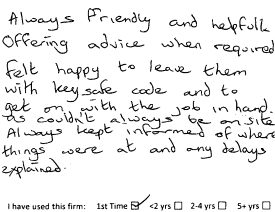 Always friendly and helpfull
Offering advice when required
felt happy to leave them
with key safe code and to
get on with the job in hand.
as couldn't always be on site
Always kept informed of where
things were at and any delays
explained.
I have used this firm: 1st Time ☑ <2 yrs ☐ 2-4 yrs ☐ 5+ yrs ☐